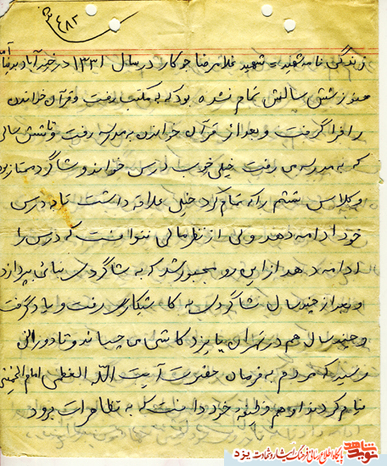 زندگی نامه شهید شهید غلامرضا جوکار در سال ۱۳۳۱ در خیرآباد بدنیا آمد
هنوز شش سالش تمام نشده بود که به مکتب رفت و قرآن خواندن
را فرا گرفت و بعد از قرآن خواندن به مدرسه رفت و تا شش سالی
که به مدرسه می رفت خیلی خوب درس خواند و شاگرد ممتاز بود
و کلاس ششم را که تمام کرد خیلی علاقه داشت تا به درس
خود ادامه دهد ولی از نظر مالی نتوانست که درس را
ادامه دهد از این رو مجبور شد که به شاگردی بنائی بپردازد
و بعد از چند سال شاگردی به کاشیکاری رفت و یاد گرفت
و چند سال هم در تهران یا یزد کاشی می چسباند و تا دورانی
رسید که مردم به فرمان حضرت آیت الله العظمی امام الخمینی
قیام کردند او هم وظیفه خود دانست که به تظاهرات برود
نوید شاهد
پایگاه اطلاع رسانی فرهنگ ایثار و شهادت یزد